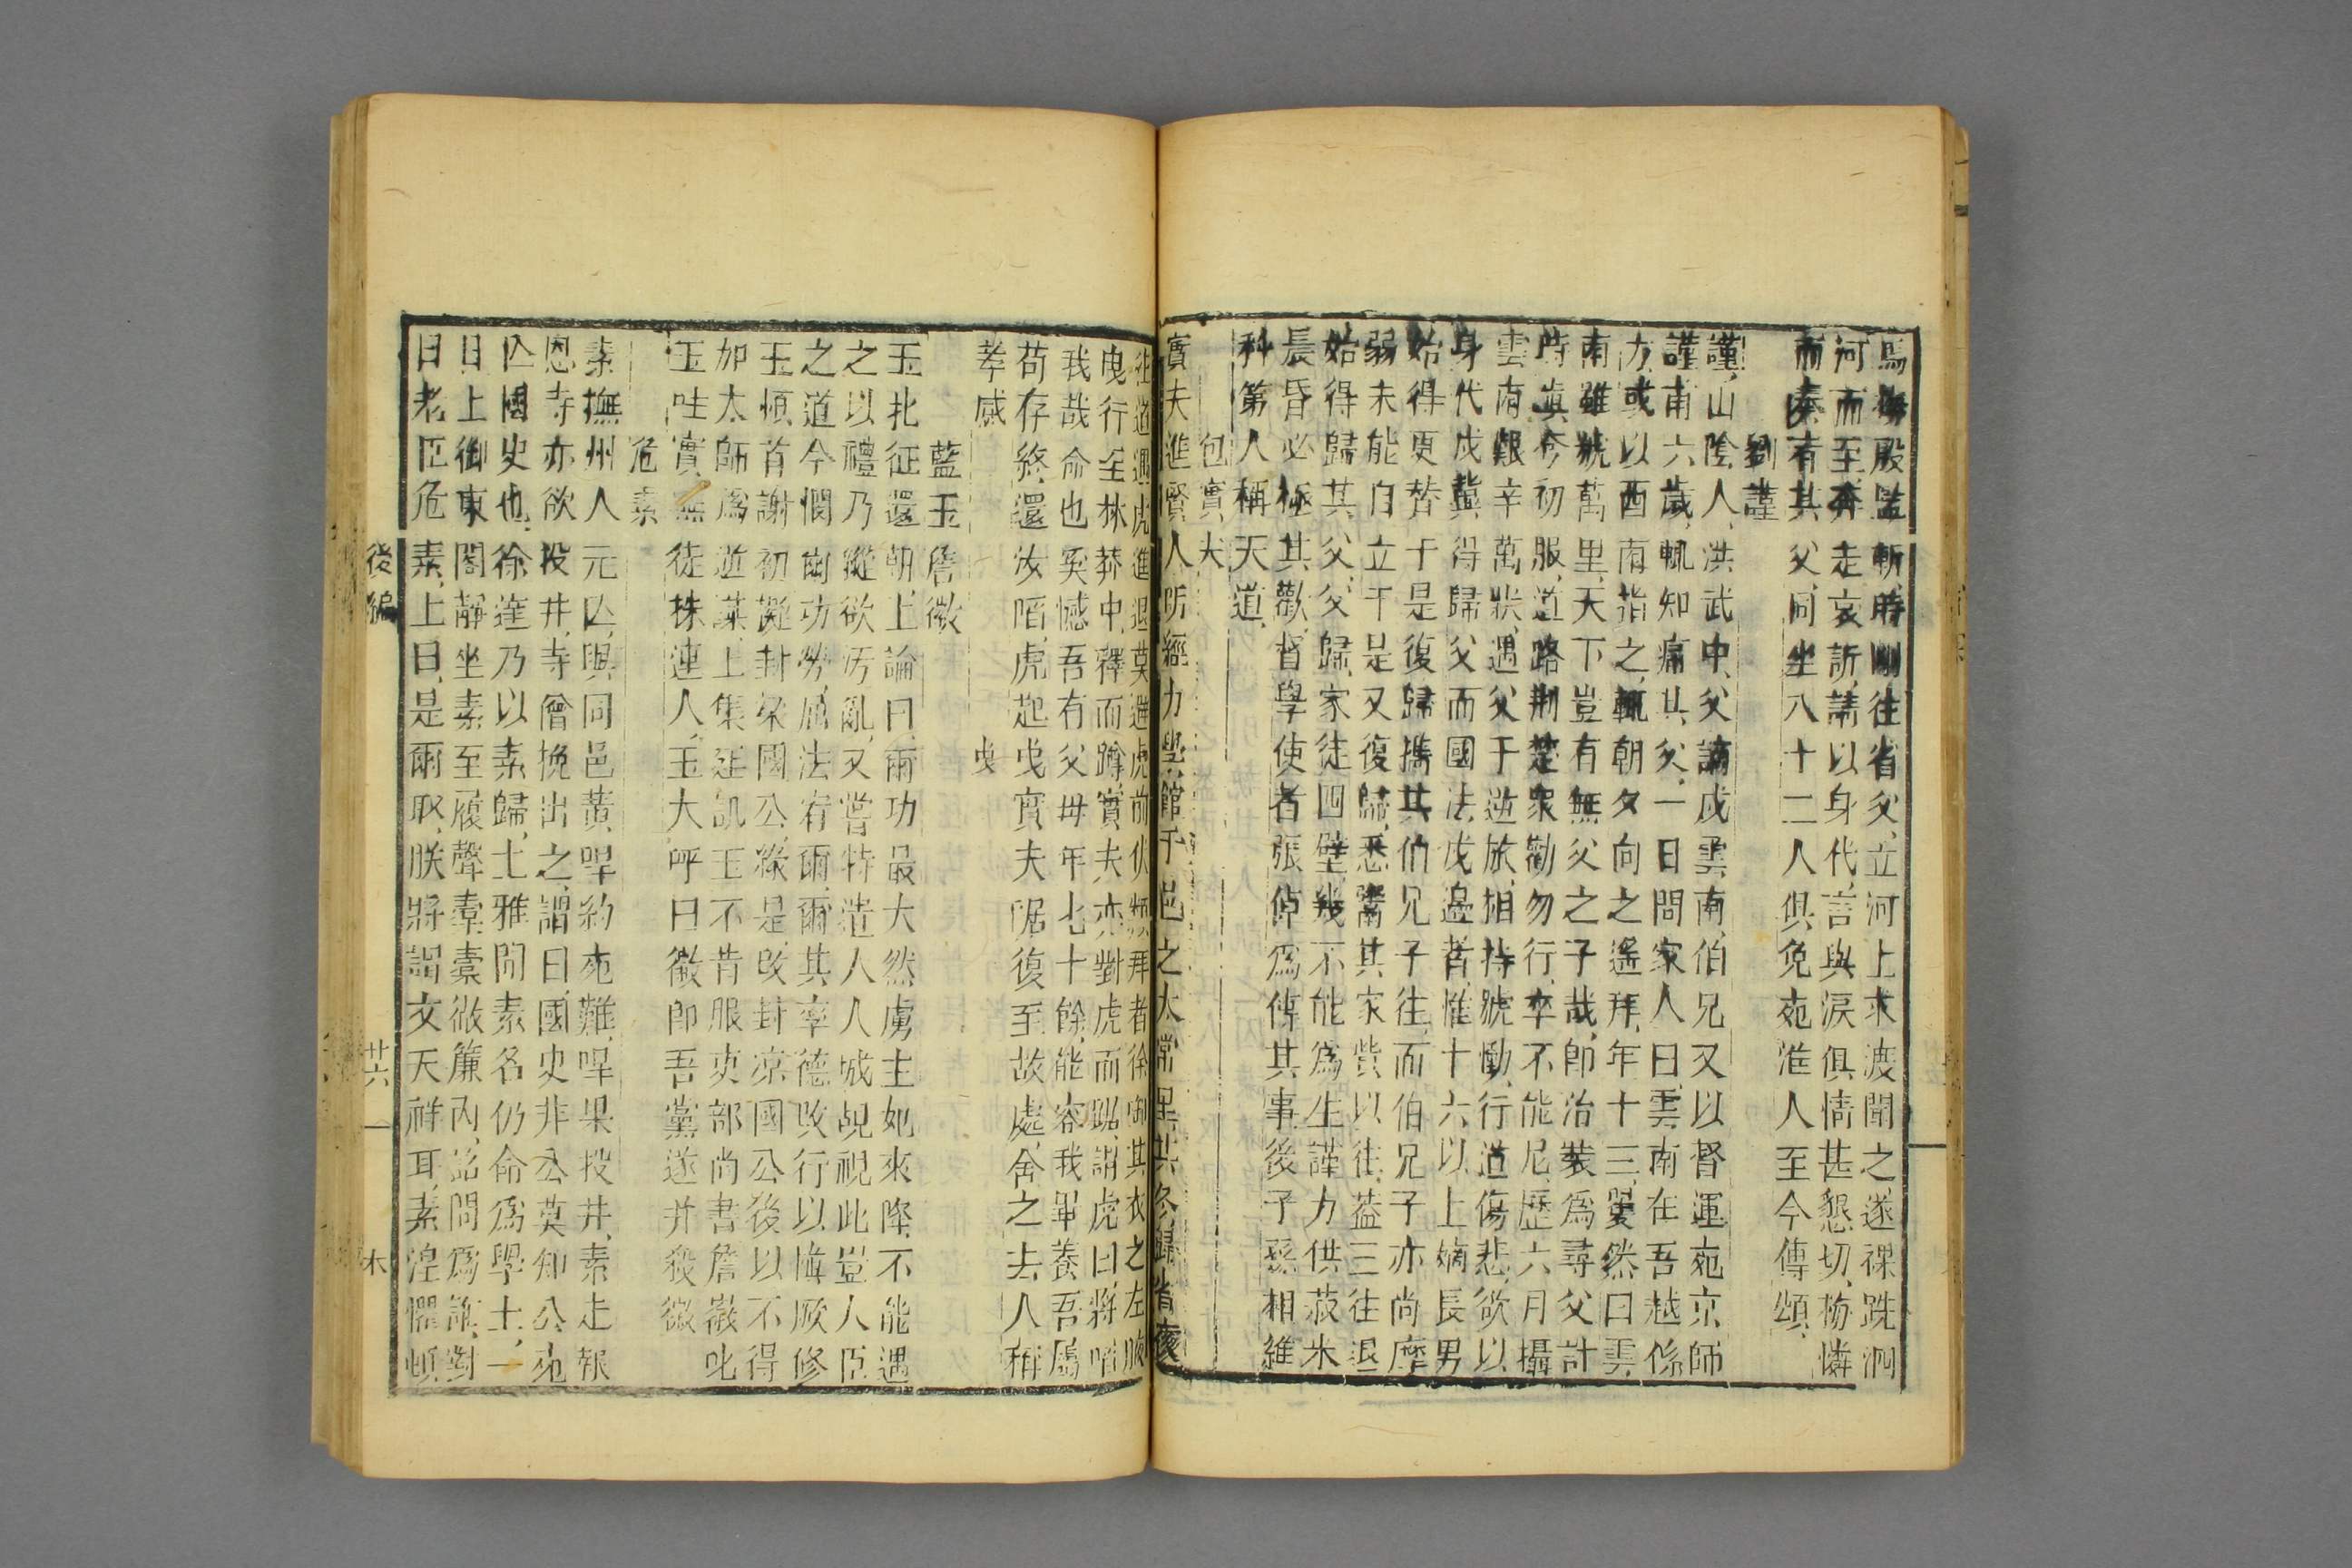 馬楊殿監斬時剛往省父立河上求渡聞之遂裸跣泂
河而至奔走哀訴請以身代言與淚俱情甚懇切楊憐
而奏有其父同坐八十二人俱免死淮人至今傳頌
劉謹
謹山陰人洪武中父謫戍雲南伯兄又以督運死京師
謹甫六歲輒知痛其父一日問家人曰雲南在吾越係
方或以西南指之輒朝夕向之遙拜年十三矍然曰雲
南雖號萬里天下豈有無父之子哉即治裝為尋父計
時滇夸初服道路荆楚眾勸勿行卒不能尼歷六月攝
雲南艱辛萬狀遇父于逆旅相持號慟行道傷悲欲以
身代戍冀得歸父而國法戍邊者惟十六以上嫡長男
始得更替于是復歸攜其伯兄子往而伯兄子亦尚𢊁
弱未能自立于是又復歸悉鬻其家貲以往葢三往返
始得歸其父父歸家徒四壁幾不能為生謹力供菽米
晨昏必極其歡督學使者張倬為傳其事後子孫相維
科第人稱天道
包實夫
實夫進賢人明經力學館于邑之太常里其冬歸省夜
往道遇虎進退莫進虎前伏頻拜者徐啣其衣之左腋
曳行至林莽中釋而蹲實夫亦對虎而踞謂虎曰將啗
我哉命也奚憾吾有父母年七十餘能容我畢養吾屬
苟存終還汝啗虎起曳實夫踞復至故處舍之去人稱
孝感 曳
藍玉詹徵
玉北征還朝上論曰爾功最大然虜主妃來降不能遇
之以禮乃縱欲汚亂又嘗特遣人人城覘視此豈人臣
之道今憫爾功勞屈法宥爾爾其率德改行以悔厥修
玉頓首謝初擬封梁國公緣是改封凉國公後以不得
加太師為逆謀上集廷訊玉不吿服吏部尚書詹徽叱
玉吐實無徒株連人玉大呼曰徽即吾黨遂并殺徽
危素
素撫州人元亾與同邑黃哻約死難哻果投井素走報
恩寺亦欲投井寺僧挽出之謂曰國史非公莫知公死
亾國史也徐達乃以素歸上雅聞素名仍命為學士一
日上御東閣靜坐素至履聲橐橐徹簾內詔問為誰對
曰老臣危素上曰是爾取朕將謂文天祥耳素湟懼頓
後編 廿六 木